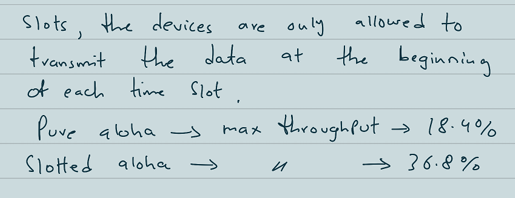 Slots, the devices are only allowed to
transmit the data at the beginning
of each time slot.
Pure aloha → max throughput → 18.4%
Slotted aloha → " → 36.8%